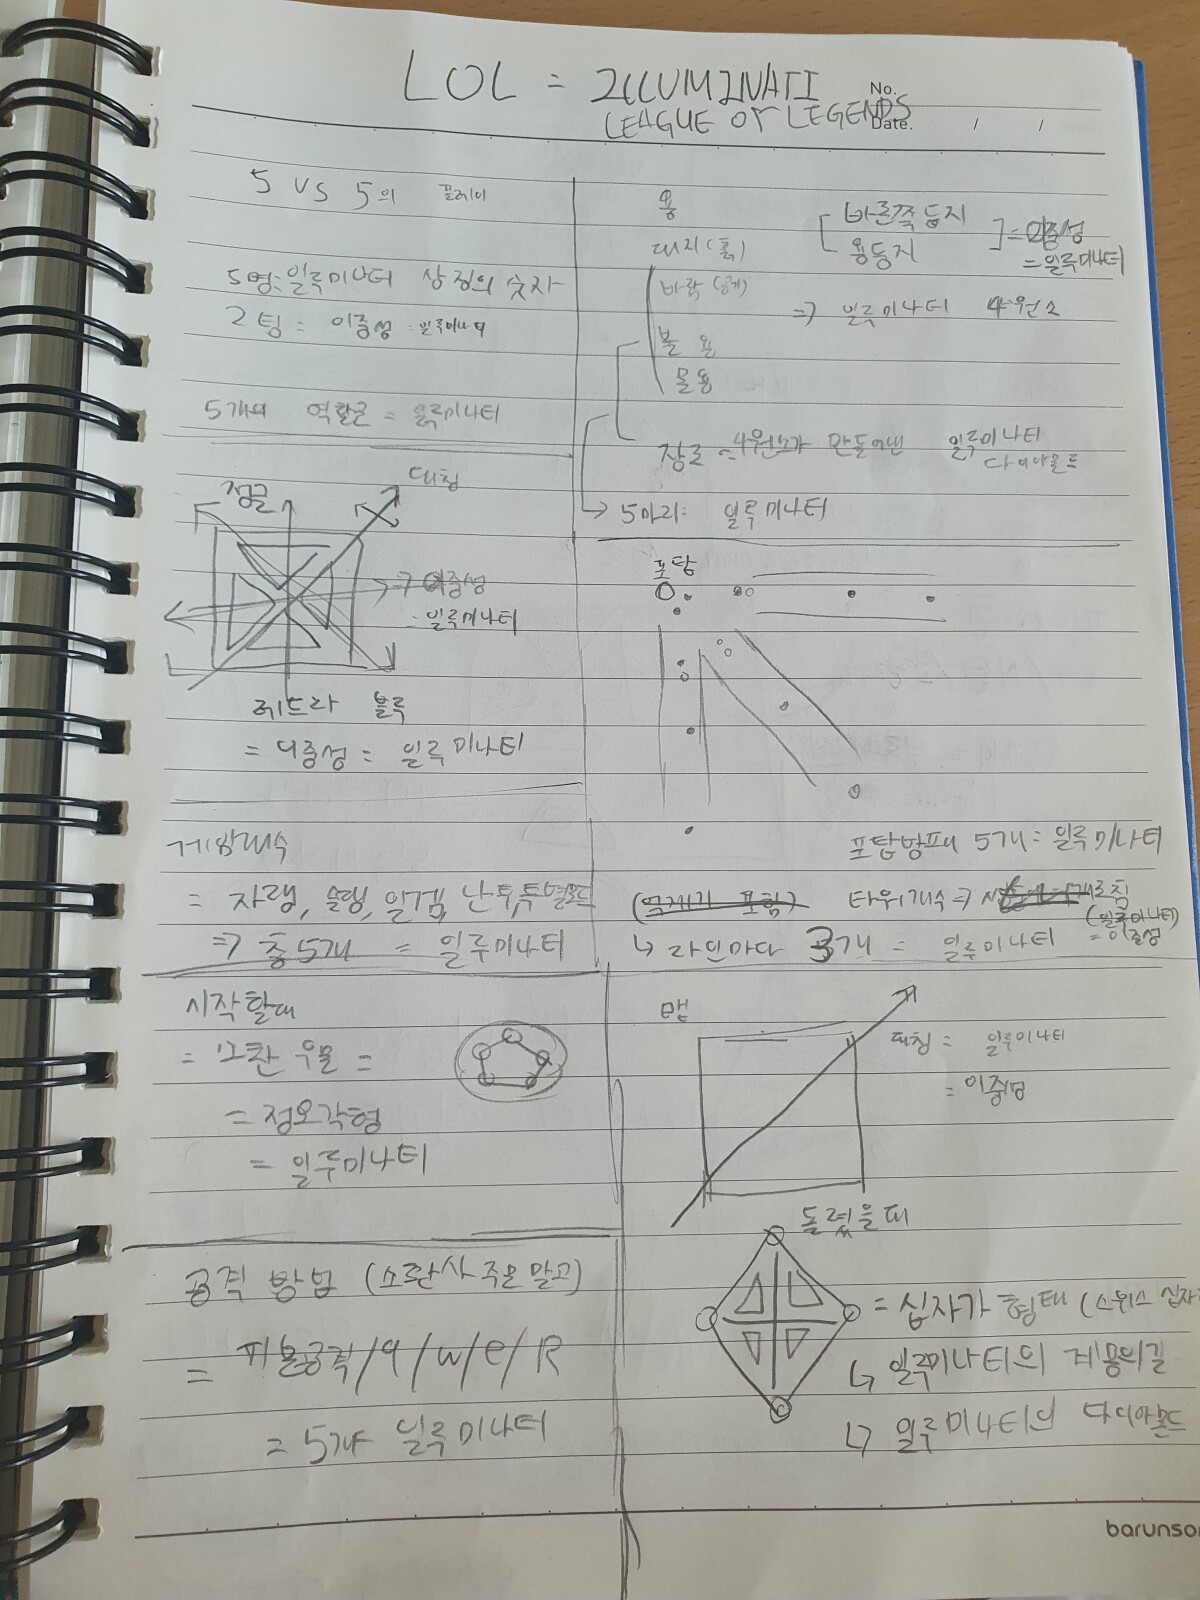 LOL = ILLUMINATI
LEAGUE OF LEGENDS
No.
Date. / /
5 VS 5의 플레이
5명: 일루미나티 상징의 숫자
2팀 = 이중성 = 일루미나티
5개의 역할군 = 일루미나티
정글
대칭
=> 이중성
= 일루미나티
레드와 블루
= 이중성 = 일루미나티
= 자랭, 솔랭, 일겜, 난투, 투별모드
=> 총 5개 = 일루미나티
시작할때
= 소환 우물 =
= 정오각형
= 일루미나티
공격 방법 (소환사 주문 말고)
= 피온공격/q/w/e/R
= 5개 일루미나티
용
[ 바론쪽 둥지
용둥지 ] = 이중성
= 일루미나티
대지(흙)
바람(공기)
불 용
물용
=> 일루미나티 4원소
장로 = 4원소가 만들어낸 일루미나티
다이아몬드
5마리: 일루미나티
포탑
포탑방패 5개 = 일루미나티
(억제기 포함) 타워개수 =>
(일루미나티)
↳ 라인마다 3개 = 일루미나티 = 이중성
맵
대칭 = 일루미나티
= 이중성
돌렸을때
= 십자가 형태 (스위스 십자
↳ 일루미나티의 계몽의길
↳ 일루미나티의 다이아몬드
barunso